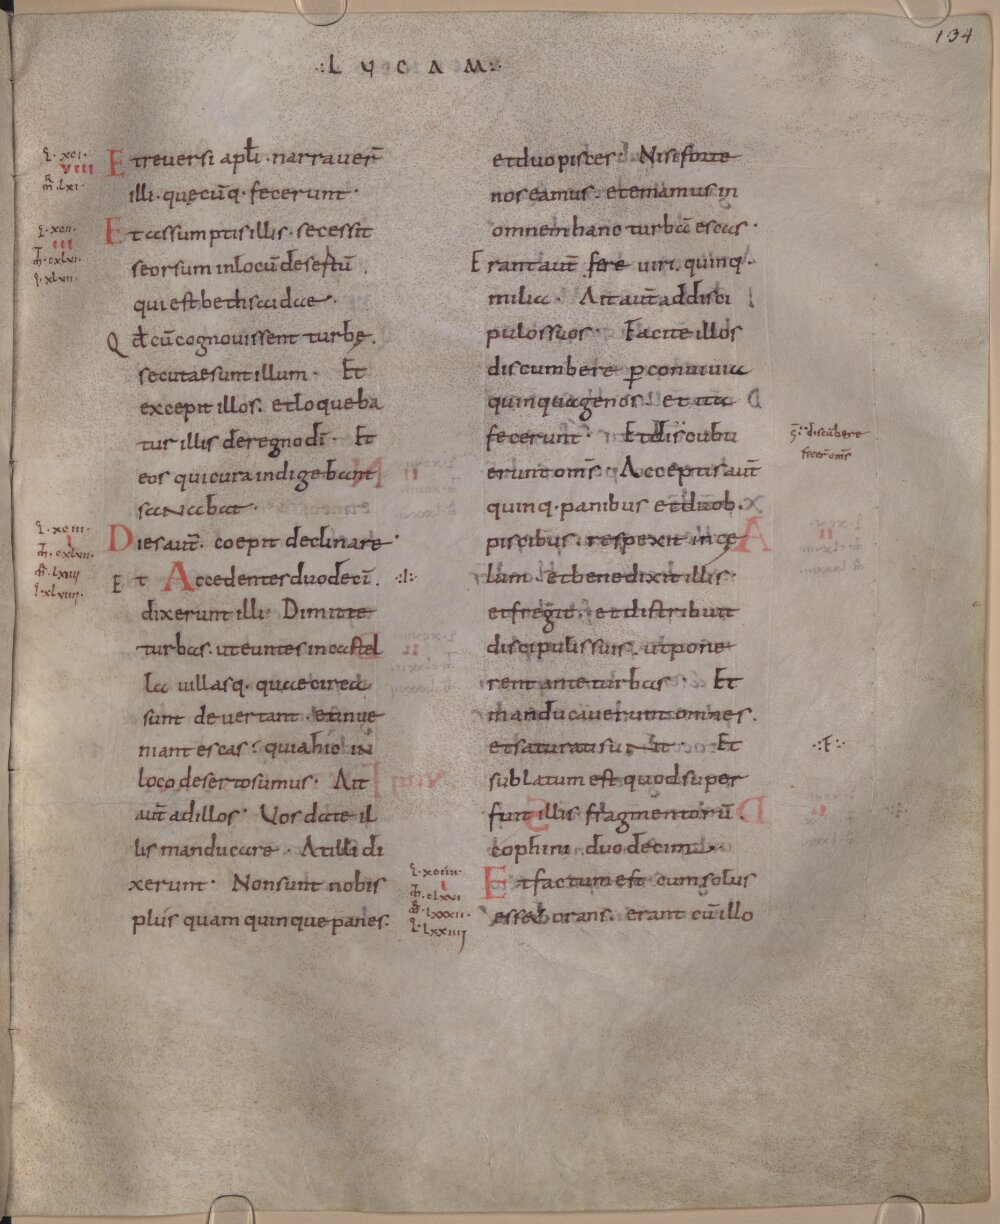 134
·:LVCAM:·
L·XCI·
VIII
MR·LXI·
Et reuersi apłi·narrauer̄
illi·quęcūq·fecerunt·
L·XCII·
III
IOH·CXLVI·
L·XLVII·
Et assumptis illis·secessit
seorsum in locū desertū.
qui est bethsaidae·
Qd̄ cū cognouissent turbę.
secutae sunt illum· Et
excepit illos. et loqueba
tur illis de regno dī· Et
eos qui cura indigebant
sanabat·
L·XCIII·
I
IOH·CXLVII·
MR·LXIIII
L·XLVIIII·
Dies aut̄. coepit declinare·
Et Accedentes duodecī. ·:l:·
dixerunt illi Dimitte
turbas. ut euntes in castel
la uillasq. quae circa
sunt deuertant·et inue
niant escas: quia hic in
loco deserto sumus· Ait
aut̄ ad illos· Vos date il
lis manducare· At illi di
xerunt· Non sunt nobis
plus quam quinque panes.
et duo pisces· Nisi forte
nos eamus. et emamus in
omnem hanc turbā escas·
Erant aut̄ fere uiri. quinq.
milia· Ait aut̄ ad disci
pulos suos· Facite illos
discumbere p conuiuia
quinquagenos. et ita
fecerunt· Et discubu
ḡ: discūbere
fecer̄ om̄s
erunt om̄s. Acceptis aut̄
quinq·panibus et duob.
piscibus. respexit in cę
lum·et benedixit illis·
et fregit·et distribuit
discipulis suis·ut pone
rent ante turbas· Et
manducauerunt omnes.
et saturati sunt· Et
·:F:·
sublatum est quod super
fuit illis fragmentorū.
cophini duodecim·
L·XCIIII·
I
MT·CLXVI
MR·LXXXII·
L·LXXIIII
Et factum est cum solus
esset orans. erant cū illo